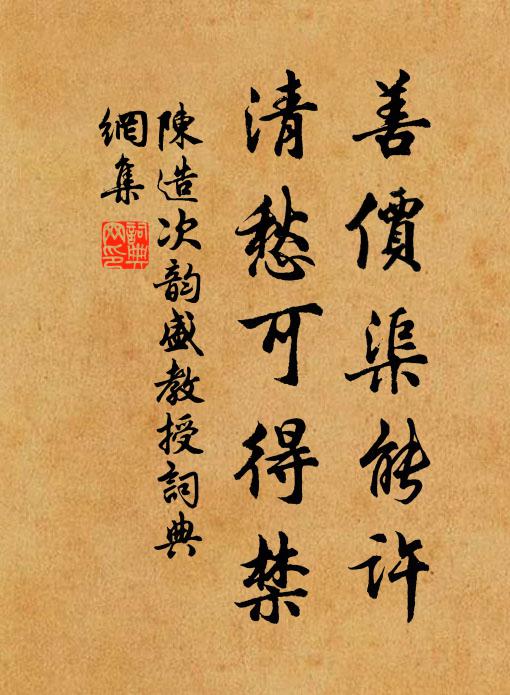 善價渠能許
清愁可得禁
陳造次韵盛教授詞典
網集
詞典網印